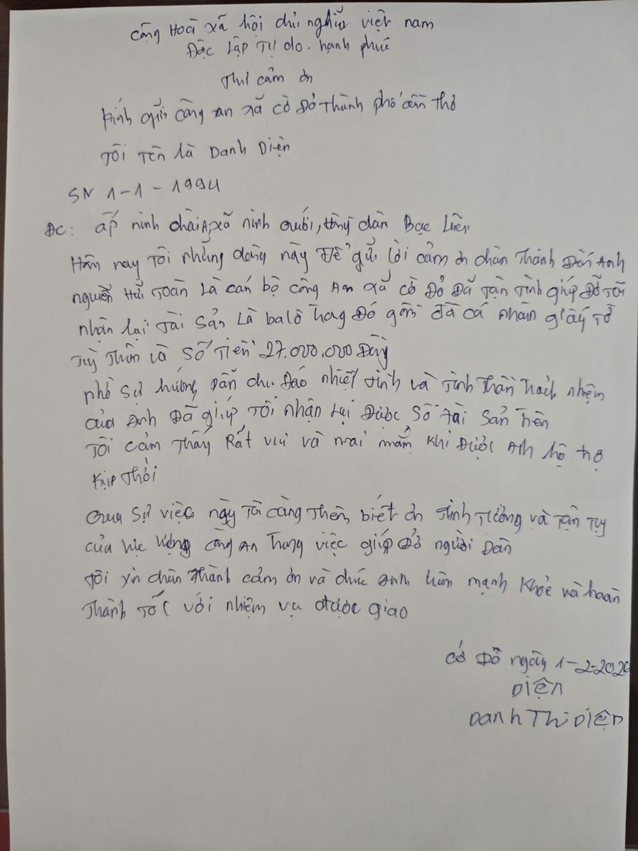 Cộng Hoà xã hội chủ nghĩa việt nam
Độc Lập Tự do - hạnh phúc
Thư cảm ơn
Kính gửi công an xã cờ Đỏ Thành phố cần Thơ
Tôi Tên là Danh Diện
SN 1-1-1994
ĐC: ấp ninh chài A, xã ninh quới, hồng dân Bạc Liêu
Hôm nay Tôi những dòng này Để gửi lời cảm ơn chân Thành Đến Anh
nguyễn Hữu Toàn Là cán bộ công An xã cờ Đỏ Đã Tận Tình giúp Đỡ Tôi
nhận lại Tài Sản Là balô Trong Đó gồm cá nhân giấy Tờ
Tuỳ Thân và Số Tiền 27.000.000 Đồng
nhờ Sự hướng Dẫn chu Đáo nhiệt Tình và Tinh Thần Trách nhiệm
của Anh Đã giúp Tôi nhận Lại Được Số Tài Sản Trên
Tôi cảm Thấy Rất vui và mai mắn khi Được Anh hỗ trợ
Kịp Thời
Qua Sự việc này Tôi càng Thêm biết ơn Tin Tưởng và Tận Tuỵ
của Lực Lượng công An Trong việc giúp Đỡ người Dân
Tôi xin chân Thành cảm ơn và chúc Anh luôn mạnh Khoẻ và hoàn
Thành Tốt với nhiệm vụ được giao
cờ Đỏ ngày 1-2-2026
Diện
Danh Thị Diện